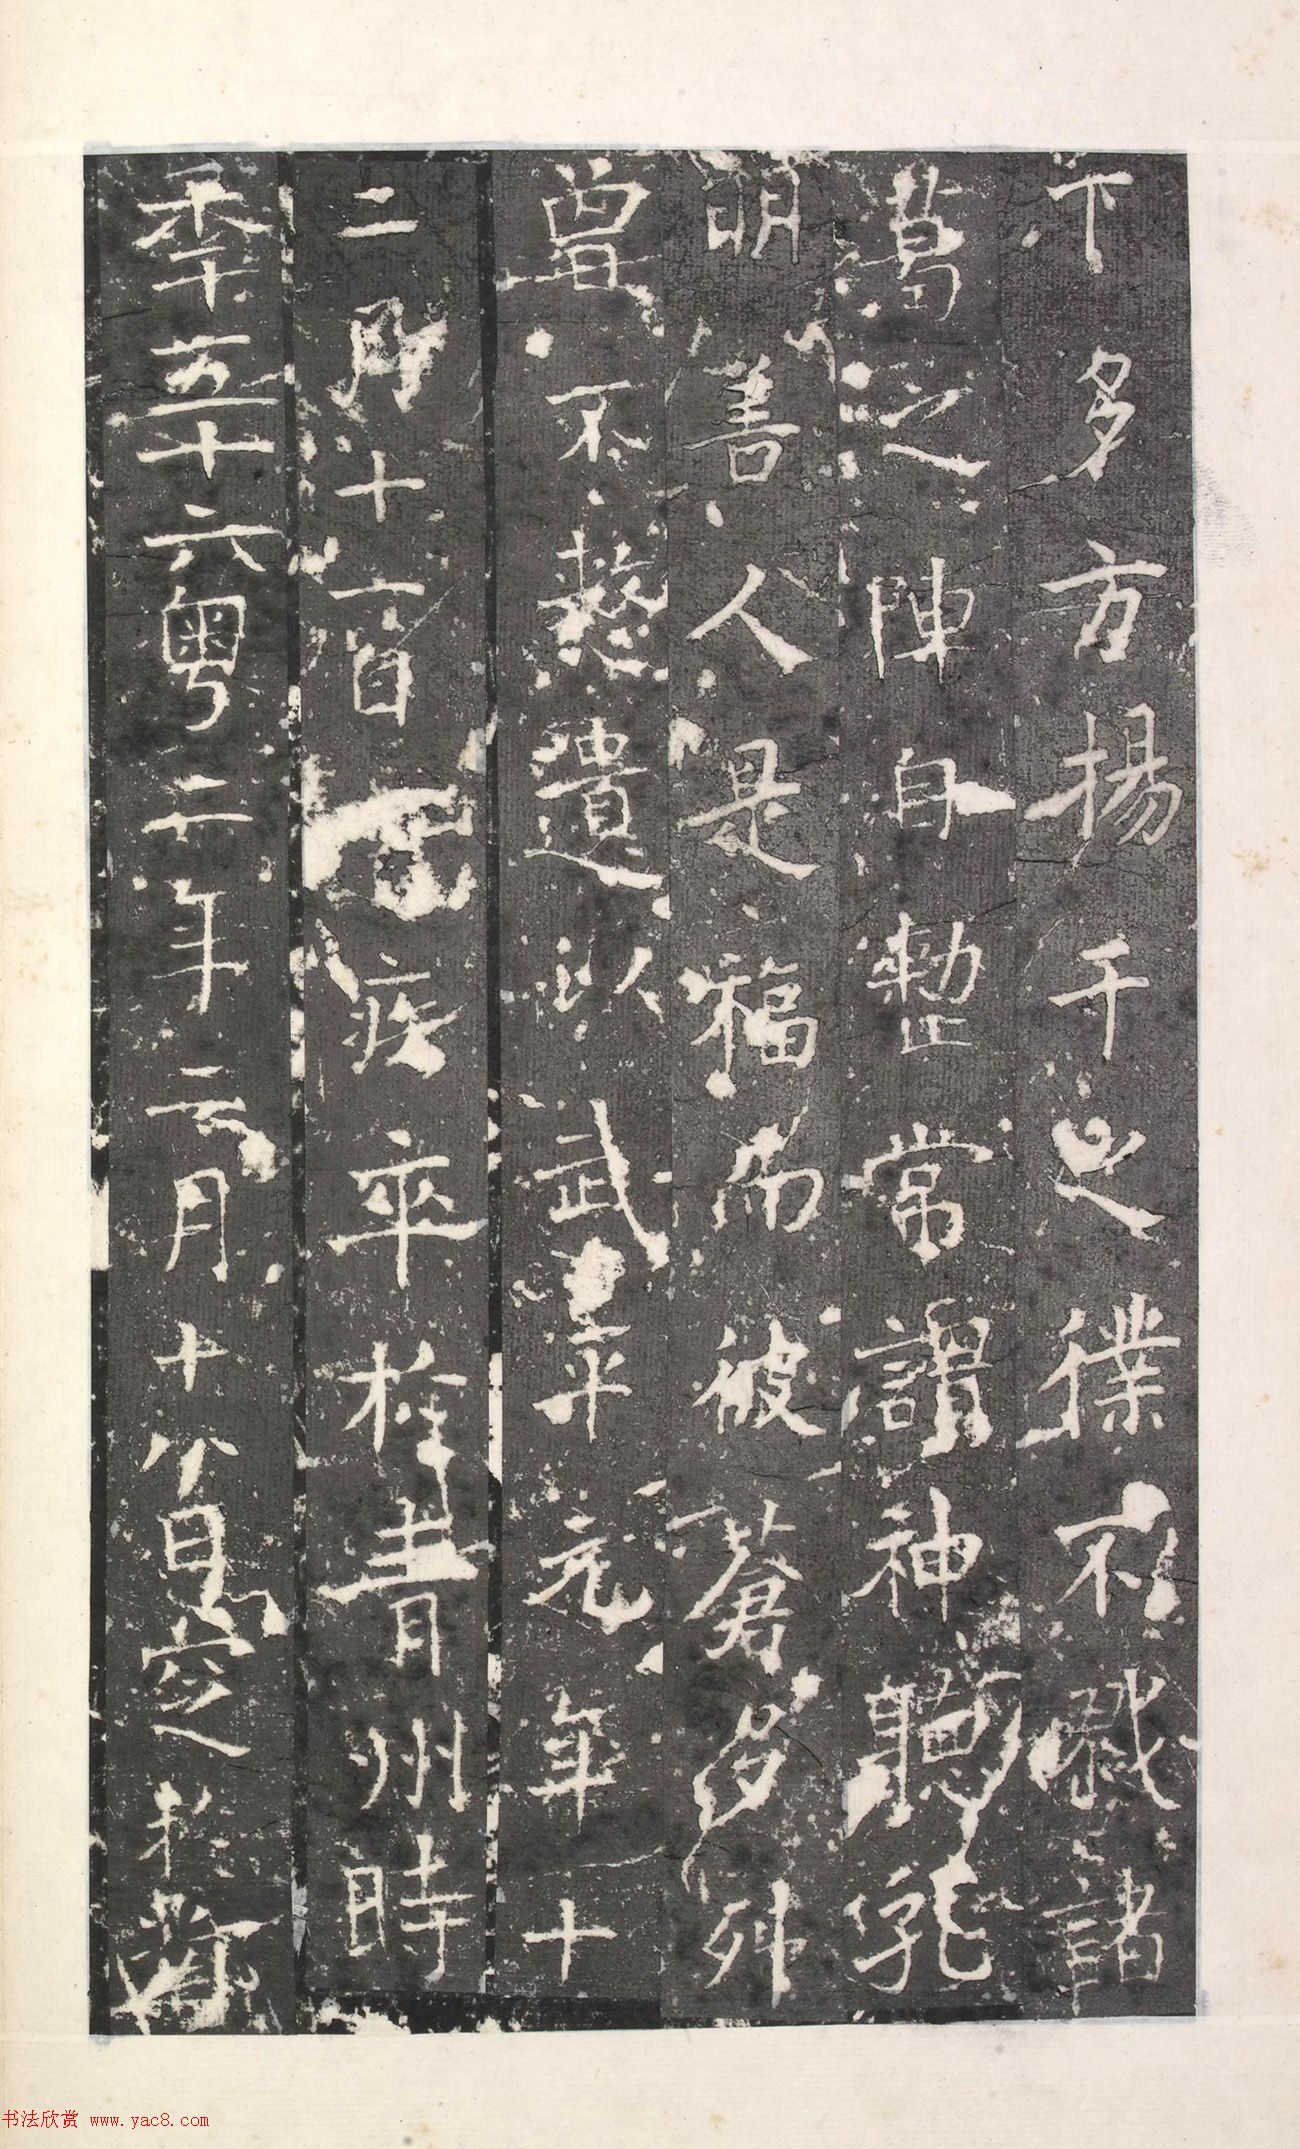 下多方揚干之僕不戮諸
葛之陣自整常謂神聽孔
明善人是福而彼蒼多舛
曾不憖遺以武平元年十
二月十一日疾卒於青州時
季五十六粤二年二月十八日定於鄴
书法欣赏 www.yac8.com